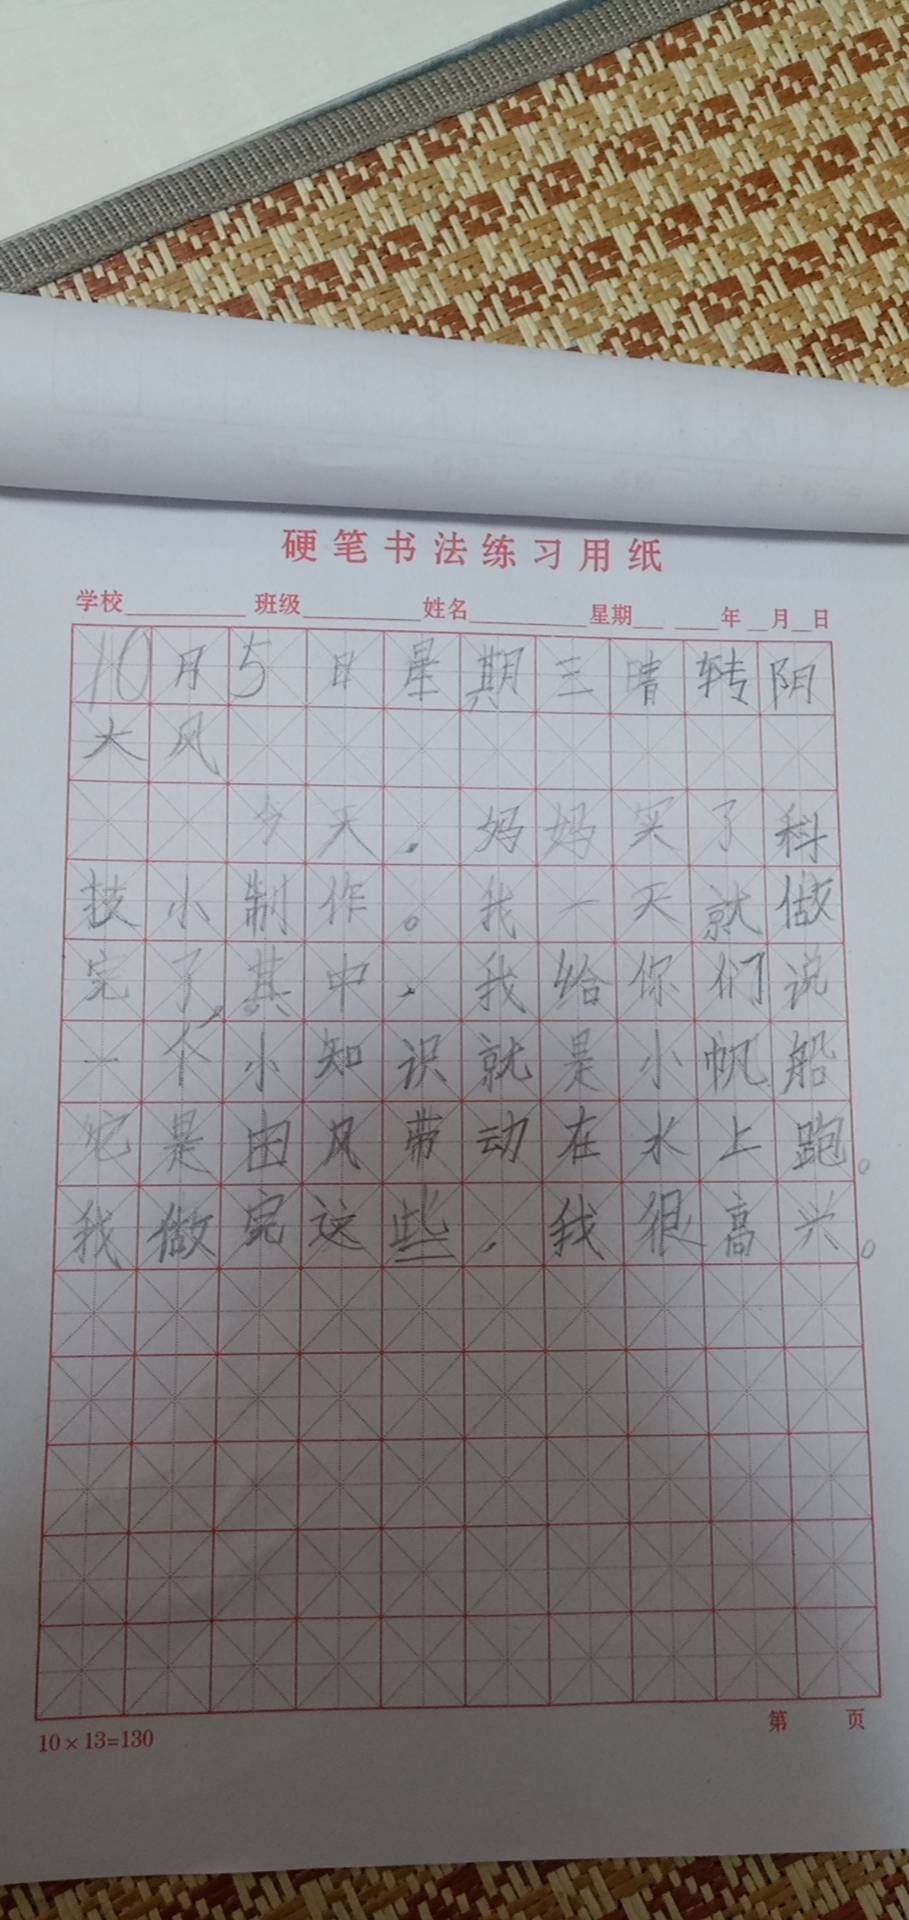 硬笔书法练习用纸
学校 班级 姓名 星期 年 月 日
10月5日星期三晴转阴
大风
今天，妈妈买了科
技小制作。我一天就做
完了，其中，我给你们说
一个小知识就是小帆船
它是由风带动在水上跑。
我做完这些，我很高兴。
10×13=130
第 页